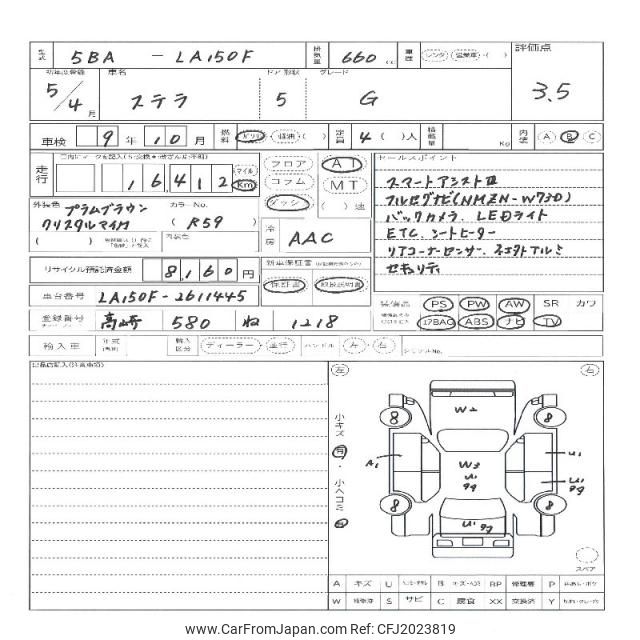 型式 5BA - LA150F 排気量 660 cc 車歴 レンタ・営業車・( ) 評価点 3.5
初年度登録 5/4月 車名 ステラ ドア 形状 5 グレード G
車検 9年 10月 燃料 ガソリン・軽油・( ) 定員 4( )人 積載量 Kg 内装 A B C
走行 16412 マイル Km
フロア コラム ダッシュ
AT MT ( )速
セールスポイント
スマートアシストⅢ
フルセグナビ(NMZN-W73D)
バックカメラ. LEDライト
ETC. シートヒーター
リアコーナーセンサー.
セキュリティ
外装色 プラムブラウン クリスタルマイカ
カラーNo. (R59)
内装色
冷房 AAC
リサイクル預託済金額 8,160円
新車保証書 保証書 取扱説明書
車台番号 LA150F-2611445
装備品 PS PW AW SR カワ
ABS ナビ TV
登録番号 高崎 580 ね 1218
輸入車 年式 輸入区分 ディーラー・並行 ハンドル 左・右
左 右
8 8
W2
小キズ 有・小ヘコミ
A1 W3 U1
U1
8 8
U1
スペア
A キズ U B BP 修理歴 P
W S サビ C 腐食 XX 交換済 Y
www.CarFromJapan.com | Ref: CFJ2023819